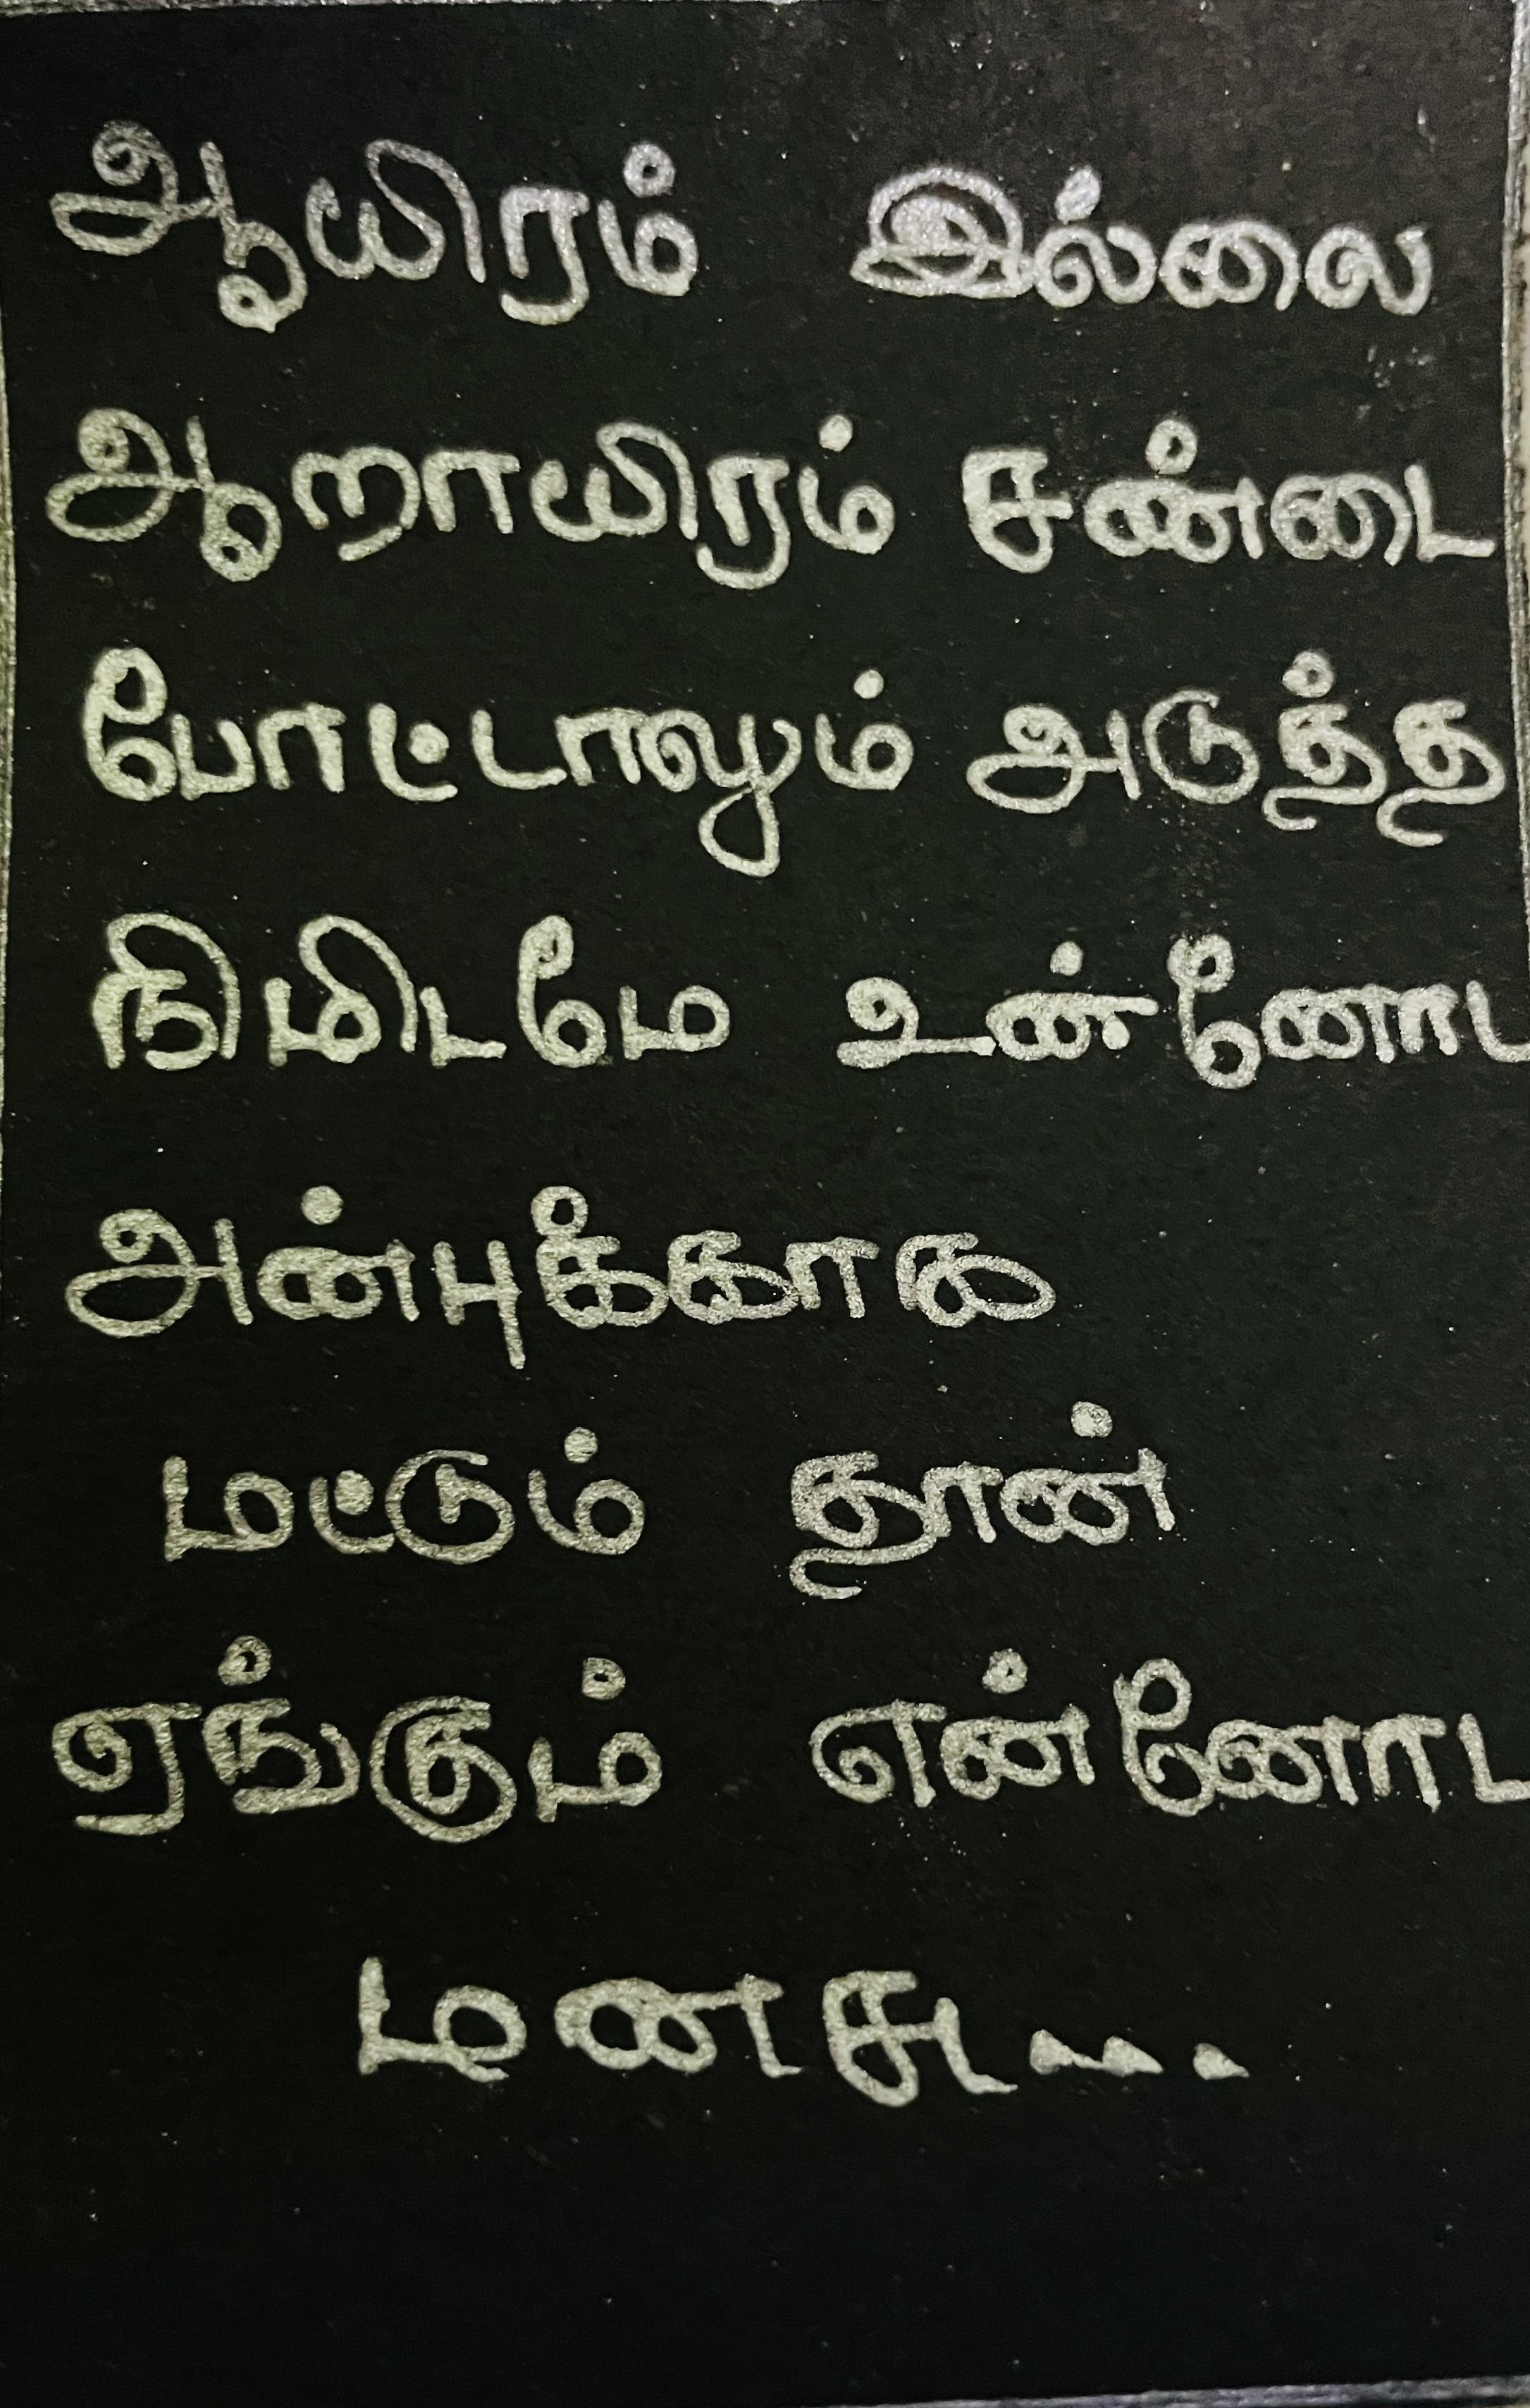 ஆயிரம் இல்லை
ஆறாயிரம் சண்டை
போட்டாலும் அடுத்த
நிமிடமே உன்னோட
அன்புக்காக
மட்டும் தான்
ஏங்கும் என்னோட
மனசு...